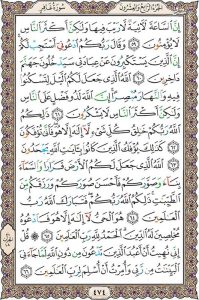 سُورَةُ غَافِرٍ الجُزْءُ الرَّابِعُ وَالعِشْرُونَ
إِنَّ ٱلسَّاعَةَ لَءَاتِيَةٌ لَّا رَيْبَ فِيهَا وَلَـٰكِنَّ أَكْثَرَ ٱلنَّاسِ
لَا يُؤْمِنُونَ ٥٩ وَقَالَ رَبُّكُمُ ٱدْعُونِىٓ أَسْتَجِبْ لَكُمْ
إِنَّ ٱلَّذِينَ يَسْتَكْبِرُونَ عَنْ عِبَادَتِى سَيَدْخُلُونَ جَهَنَّمَ
دَاخِرِينَ ٦٠ ٱللَّهُ ٱلَّذِى جَعَلَ لَكُمُ ٱلَّيْلَ لِتَسْكُنُوا۟
فِيهِ وَٱلنَّهَارَ مُبْصِرًا إِنَّ ٱللَّهَ لَذُو فَضْلٍ عَلَى ٱلنَّاسِ
وَلَـٰكِنَّ أَكْثَرَ ٱلنَّاسِ لَا يَشْكُرُونَ ٦١ ذَٰلِكُمُ ٱللَّهُ
رَبُّكُمْ خَـٰلِقُ كُلِّ شَىْءٍ لَّآ إِلَـٰهَ إِلَّا هُوَ فَأَنَّىٰ تُؤْفَكُونَ
٦٢ كَذَٰلِكَ يُؤْفَكُ ٱلَّذِينَ كَانُوا۟ بِـَٔايَـٰتِ ٱللَّهِ يَجْحَدُونَ
٦٣ ٱللَّهُ ٱلَّذِى جَعَلَ لَكُمُ ٱلْأَرْضَ قَرَارًا وَٱلسَّمَآءَ
بِنَآءً وَصَوَّرَكُمْ فَأَحْسَنَ صُوَرَكُمْ وَرَزَقَكُم مِّنَ
ٱلطَّيِّبَـٰتِ ذَٰلِكُمُ ٱللَّهُ رَبُّكُمْ فَتَبَارَكَ ٱللَّهُ رَبُّ
ٱلْعَـٰلَمِينَ ٦٤ هُوَ ٱلْحَىُّ لَآ إِلَـٰهَ إِلَّا هُوَ فَٱدْعُوهُ
مُخْلِصِينَ لَهُ ٱلدِّينَ ٱلْحَمْدُ لِلَّهِ رَبِّ ٱلْعَـٰلَمِينَ ٦٥ قُلْ
إِنِّى نُهِيتُ أَنْ أَعْبُدَ ٱلَّذِينَ تَدْعُونَ مِن دُونِ ٱللَّهِ لَمَّا جَآءَنِىَ
ٱلْبَيِّنَـٰتُ مِن رَّبِّى وَأُمِرْتُ أَنْ أُسْلِمَ لِرَبِّ ٱلْعَـٰلَمِينَ ٦٦
٤٧٤